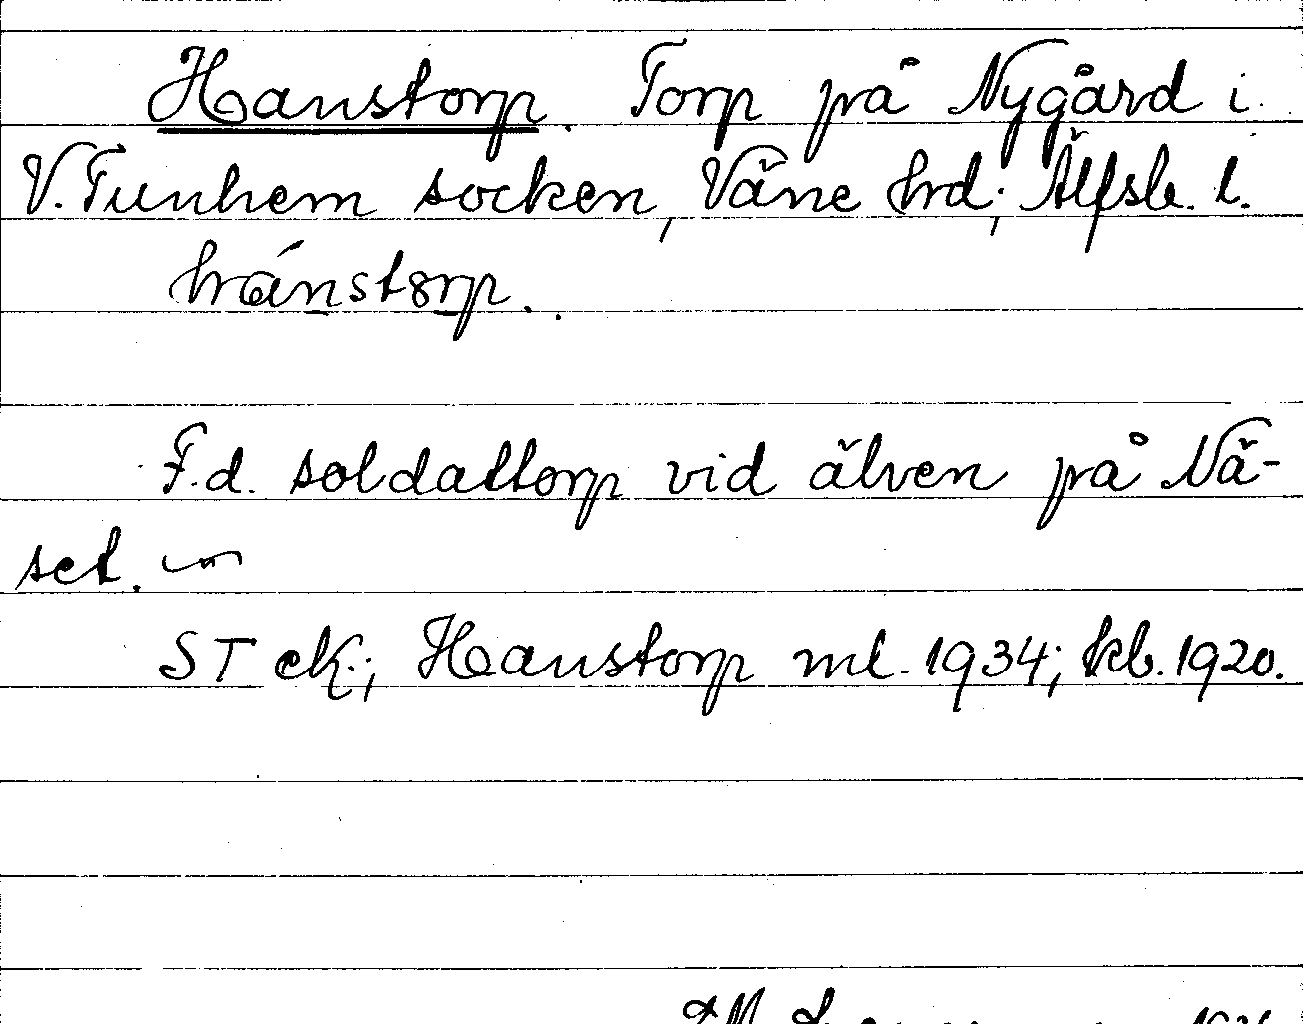 Hanstorp. Torp på Nygård i
V. Tunhem socken, Väne hrd; Älfsb. l.
hránstorp.
F.d. soldattorp vid älven på Nä-
set.
ST ek.; Hanstorp ml. 1934; kb. 1920.